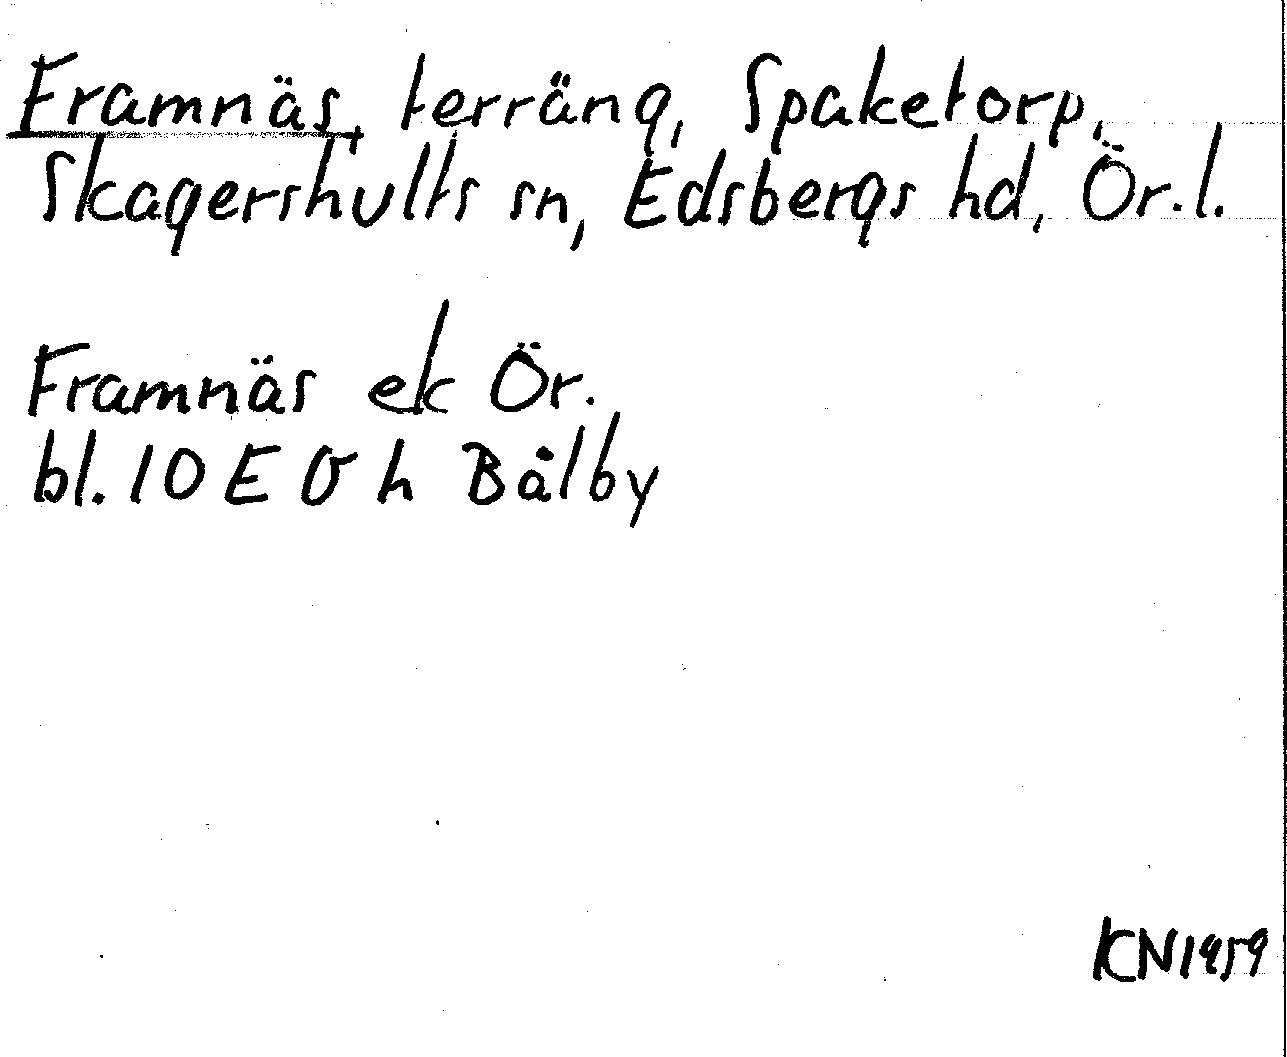 Framnäs, terräng, Spaketorp,
Skagershults sn, Edsbergs hd, Ör. l.
Framnäs ek Ör.
bl. 10 E 0 h Bålby
KN1959